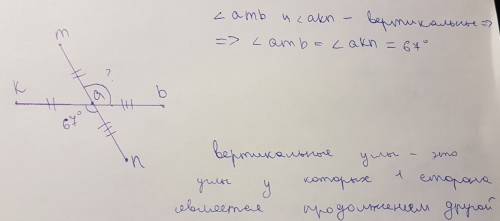 ∠amb и ∠akn – вертикальные =>
=> ∠amb = ∠akn = 67°
m
?
a
K
b
67°
n
вертикальные углы – это
углы у которых 1 сторона
является продолжением другой